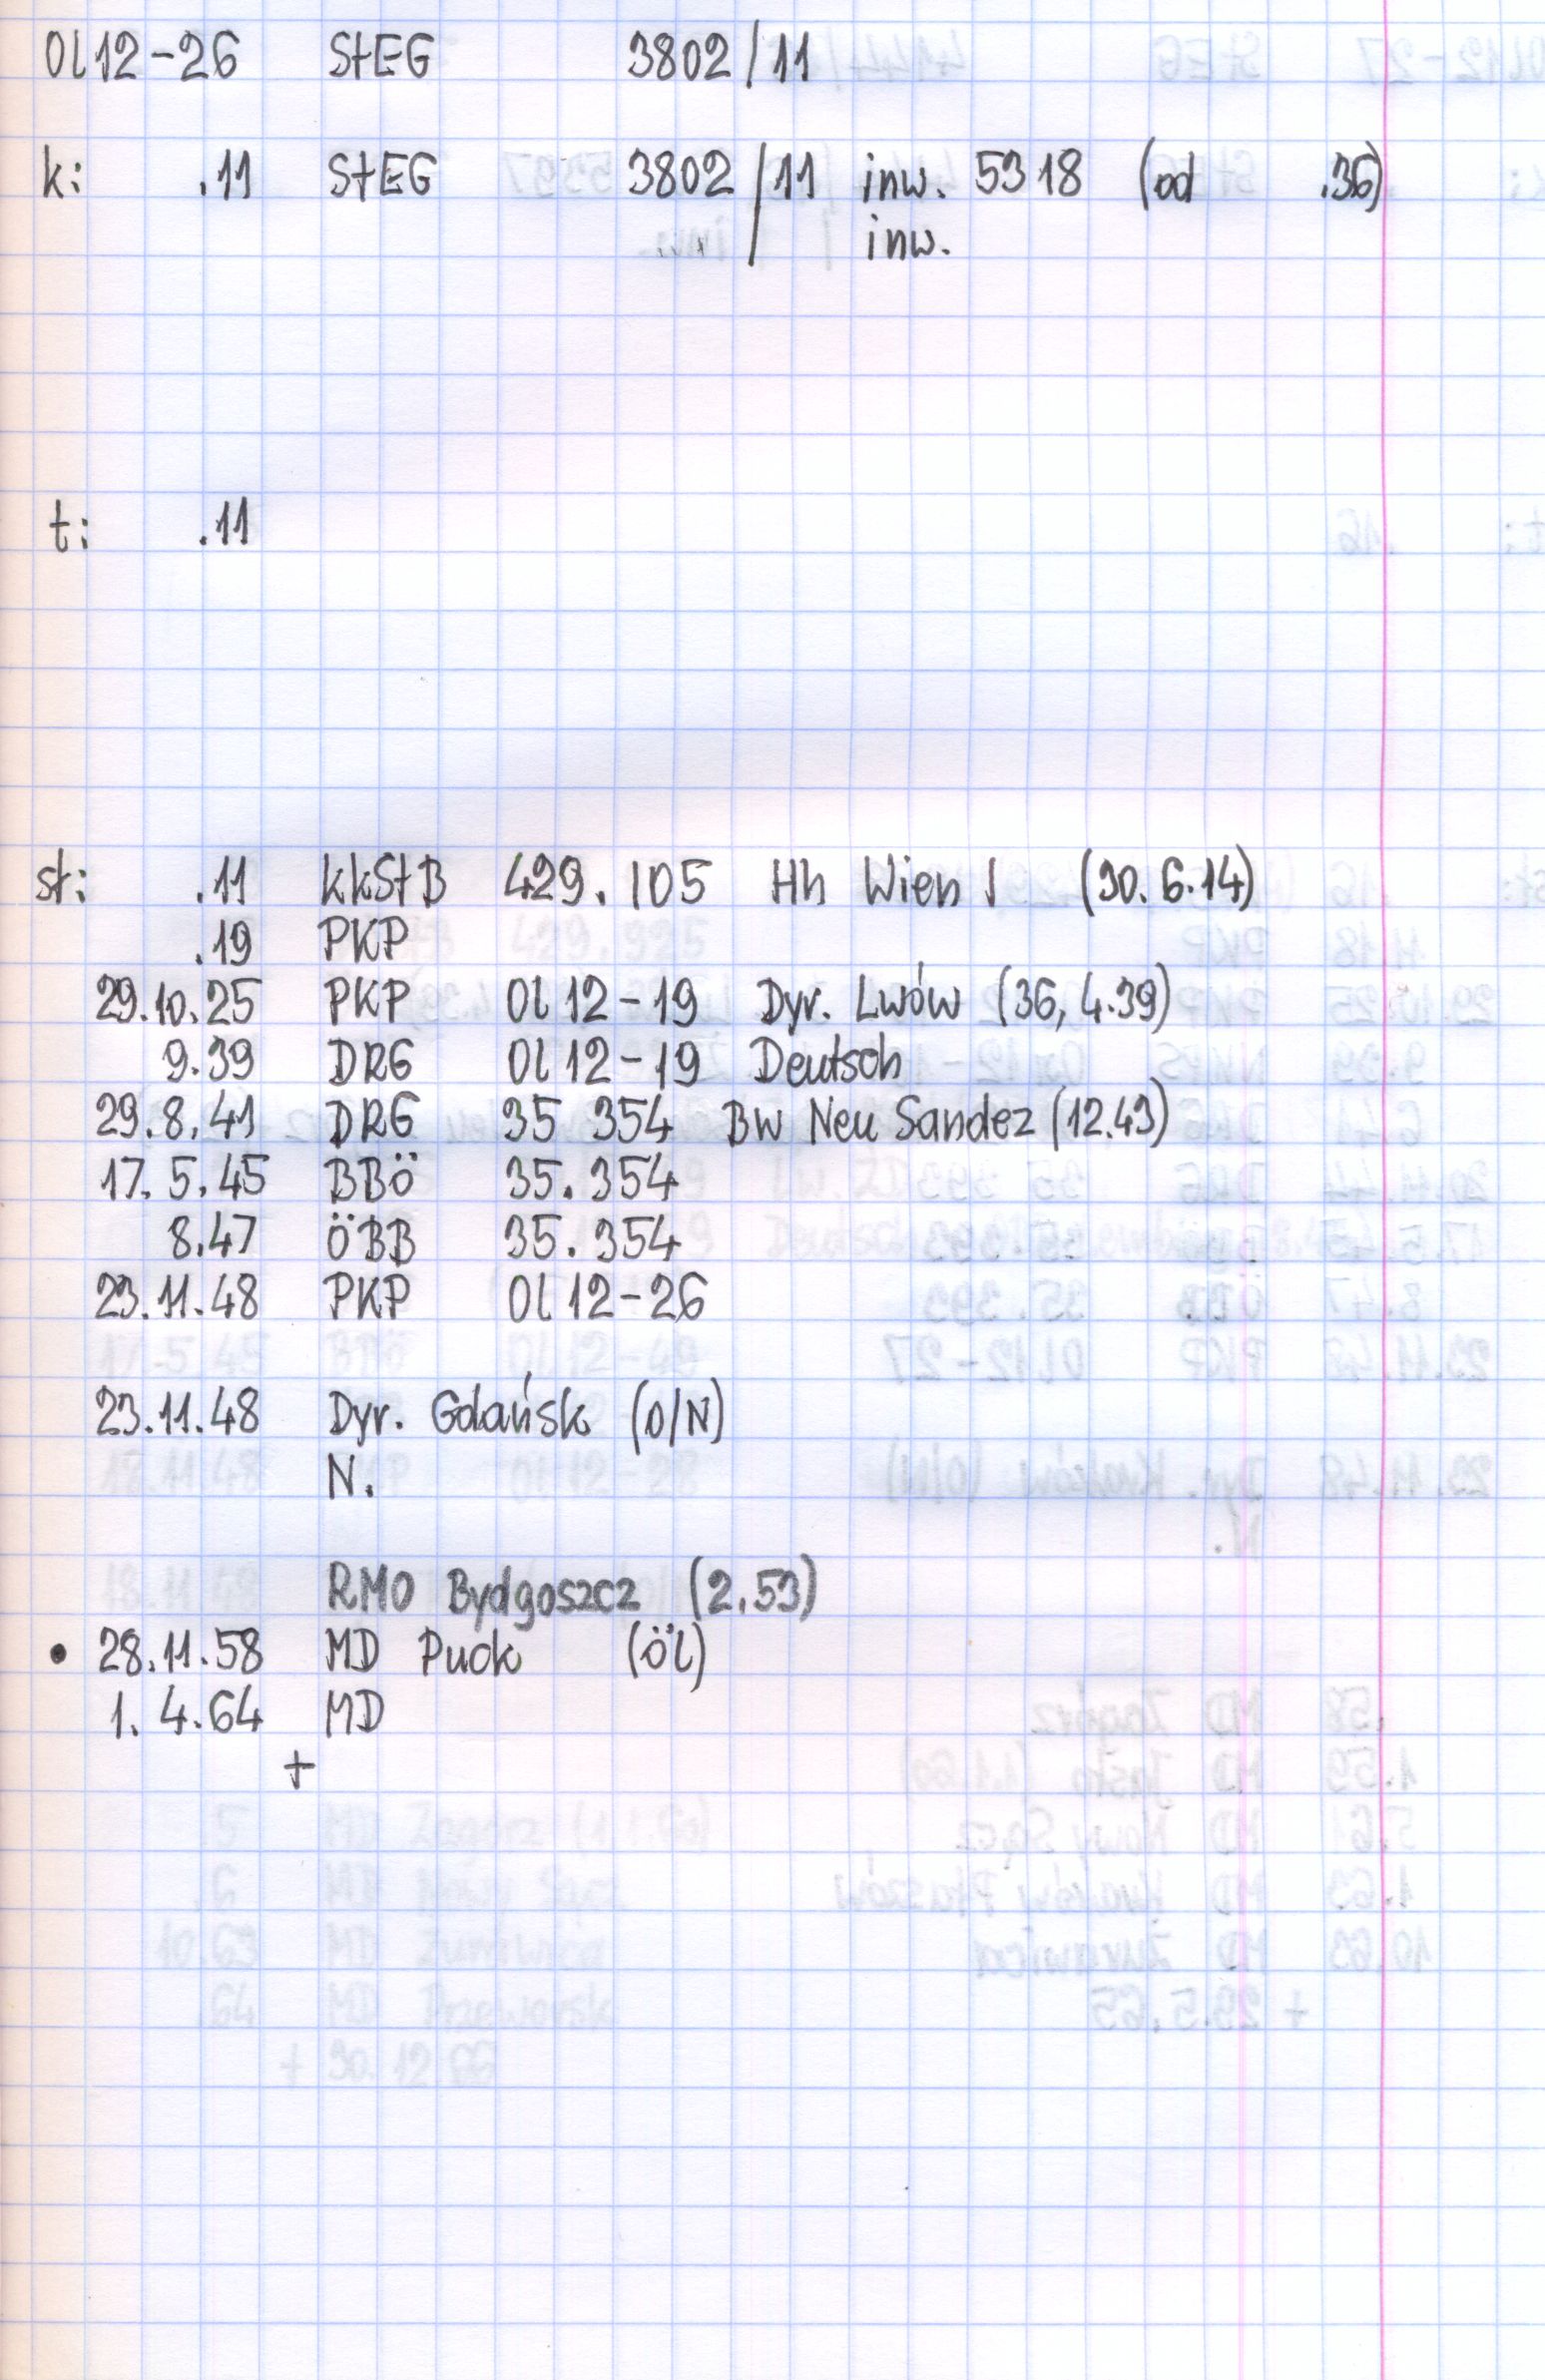 Ol12-26 StEG 3802/11
k: .11 StEG 3802/11 inw. 5318 (od .36)
/ inw.
t: .11
st: .11 kkStB 429.105 Hh Wien I (30.6.14)
.19 PKP
29.10.25 PKP Ol12-19 Dyr. Lwów (36, 4.39)
9.39 DRG Ol12-19 Deutsch
29.8.41 DRG 35 354 BW Neu Sandez (12.43)
17.5.45 BBÖ 35.354
8.47 ÖBB 35.354
23.11.48 PKP Ol12-26
23.11.48 Dyr. Gdańsk (O/N)
N.
RMO Bydgoszcz (2.53)
• 28.11.58 MD Puck (öl)
1.4.64 MD
+